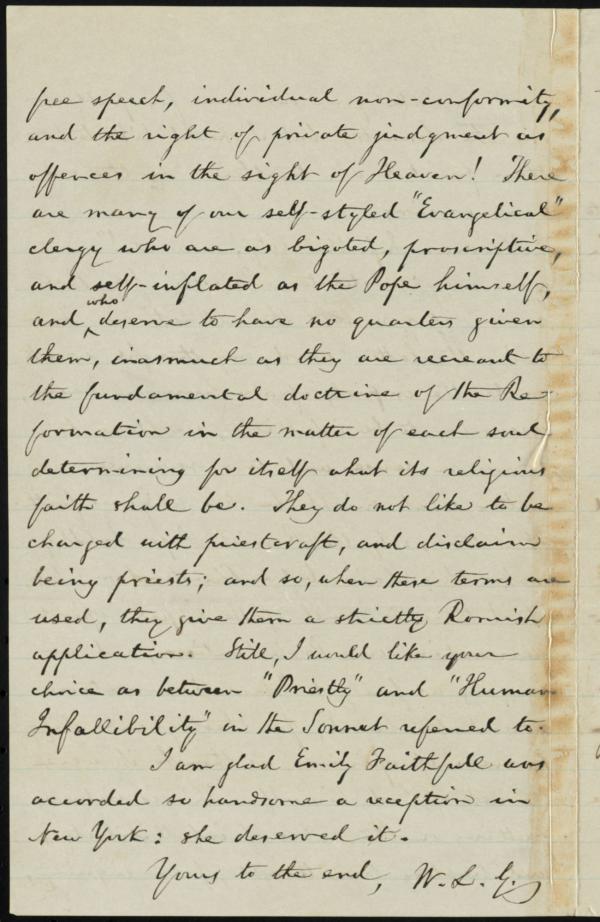 free speech, individual non-conformity,
and the right of private judgment as
offences in the sight of Heaven! There
are many of our self-styled "Evangelical"
clergy who are as bigoted, proscriptive,
and self-inflated as the Pope himself,
and who deserve to have no quarters given
them, inasmuch as they are recreant to
the fundamental doctrine of the Re-
formation in the matter of each soul
determining for itself what its religious
faith shall be. They do not like to be
charged with priestcraft, and disclaim
being priests; and so, when these terms are
used, they give them a strictly Romish
application. Still, I would like your
choice as between "Priestly" and "Human
Infallibility" in the Sonnet referred to.
I am glad Emily Faithfull was
accorded so handsome a reception in
New York: she deserved it.
Yours to the end, W. L. G.